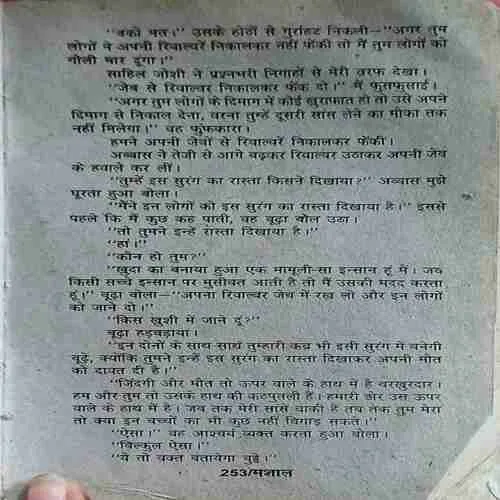 "बको मत।" उसके होठों से गुर्राहट निकली—"अगर तुम
लोगों ने अपनी रिवाल्वरें निकालकर नहीं फेंकी तो मैं तुम लोगों को
गोली मार दूंगा।"
साहिल जोशी ने प्रश्नभरी निगाहों से मेरी तरफ देखा।
"जेब से रिवाल्वर निकालकर फेंक दो।" मैं फुसफुसाई।
"अगर तुम लोगों के दिमाग में कोई खुराफात हो तो उसे अपने
दिमाग से निकाल देना, वरना तुम्हें दूसरी सांस लेने का मौका तक
नहीं मिलेगा।" वह फुंफकारा।
हमने अपनी जेबों से रिवाल्वरें निकालकर फेंकी।
अब्बास ने तेजी से आगे बढ़कर रिवाल्वर उठाकर अपनी जेब
के हवाले कर लीं।
"तुम्हें इस सुरंग का रास्ता किसने दिखाया?" अब्बास मुझे
घूरता हुआ बोला।
"मैंने इन लोगों को इस सुरंग का रास्ता दिखाया है।" इससे
पहले कि मैं कुछ कह पाती, वह बूढ़ा बोल उठा।
"तो तुमने इन्हें रास्ता दिखाया है।"
"हां।"
"कौन हो तुम?"
"खुदा का बनाया हुआ एक मामूली-सा इन्सान हूं मैं। जब
किसी सच्चे इन्सान पर मुसीबत आती है तो मैं उसकी मदद करता
हूं।" बूढ़ा बोला—"अपना रिवाल्वर जेब में रख लो और इन लोगों
को जाने दो।"
"किस खुशी में जाने दूं?"
बूढ़ा हड़बड़ाया।
"इन दोनों के साथ साथ तुम्हारी कब्र भी इसी सुरंग में बनेगी
बूढ़े, क्योंकि तुमने इन्हें इस सुरंग का रास्ता दिखाकर अपनी मौत
को दावत दी है।"
"जिंदगी और मौत तो ऊपर वाले के हाथ में है बरखुरदार।
हम और तुम तो उसके हाथ की कठपुतली हैं। हमारी डोर उस ऊपर
वाले के हाथ में है। जब तक मेरी सांस बाकी है तब तक तुम मेरा
तो क्या इन बच्चों का भी कुछ नहीं बिगाड़ सकते।"
"ऐसा।" वह आश्चर्य व्यक्त करता हुआ बोला।
"बिल्कुल ऐसा।"
"ये तो वक्त बतायेगा बुड्ढे।"
253/मशाल